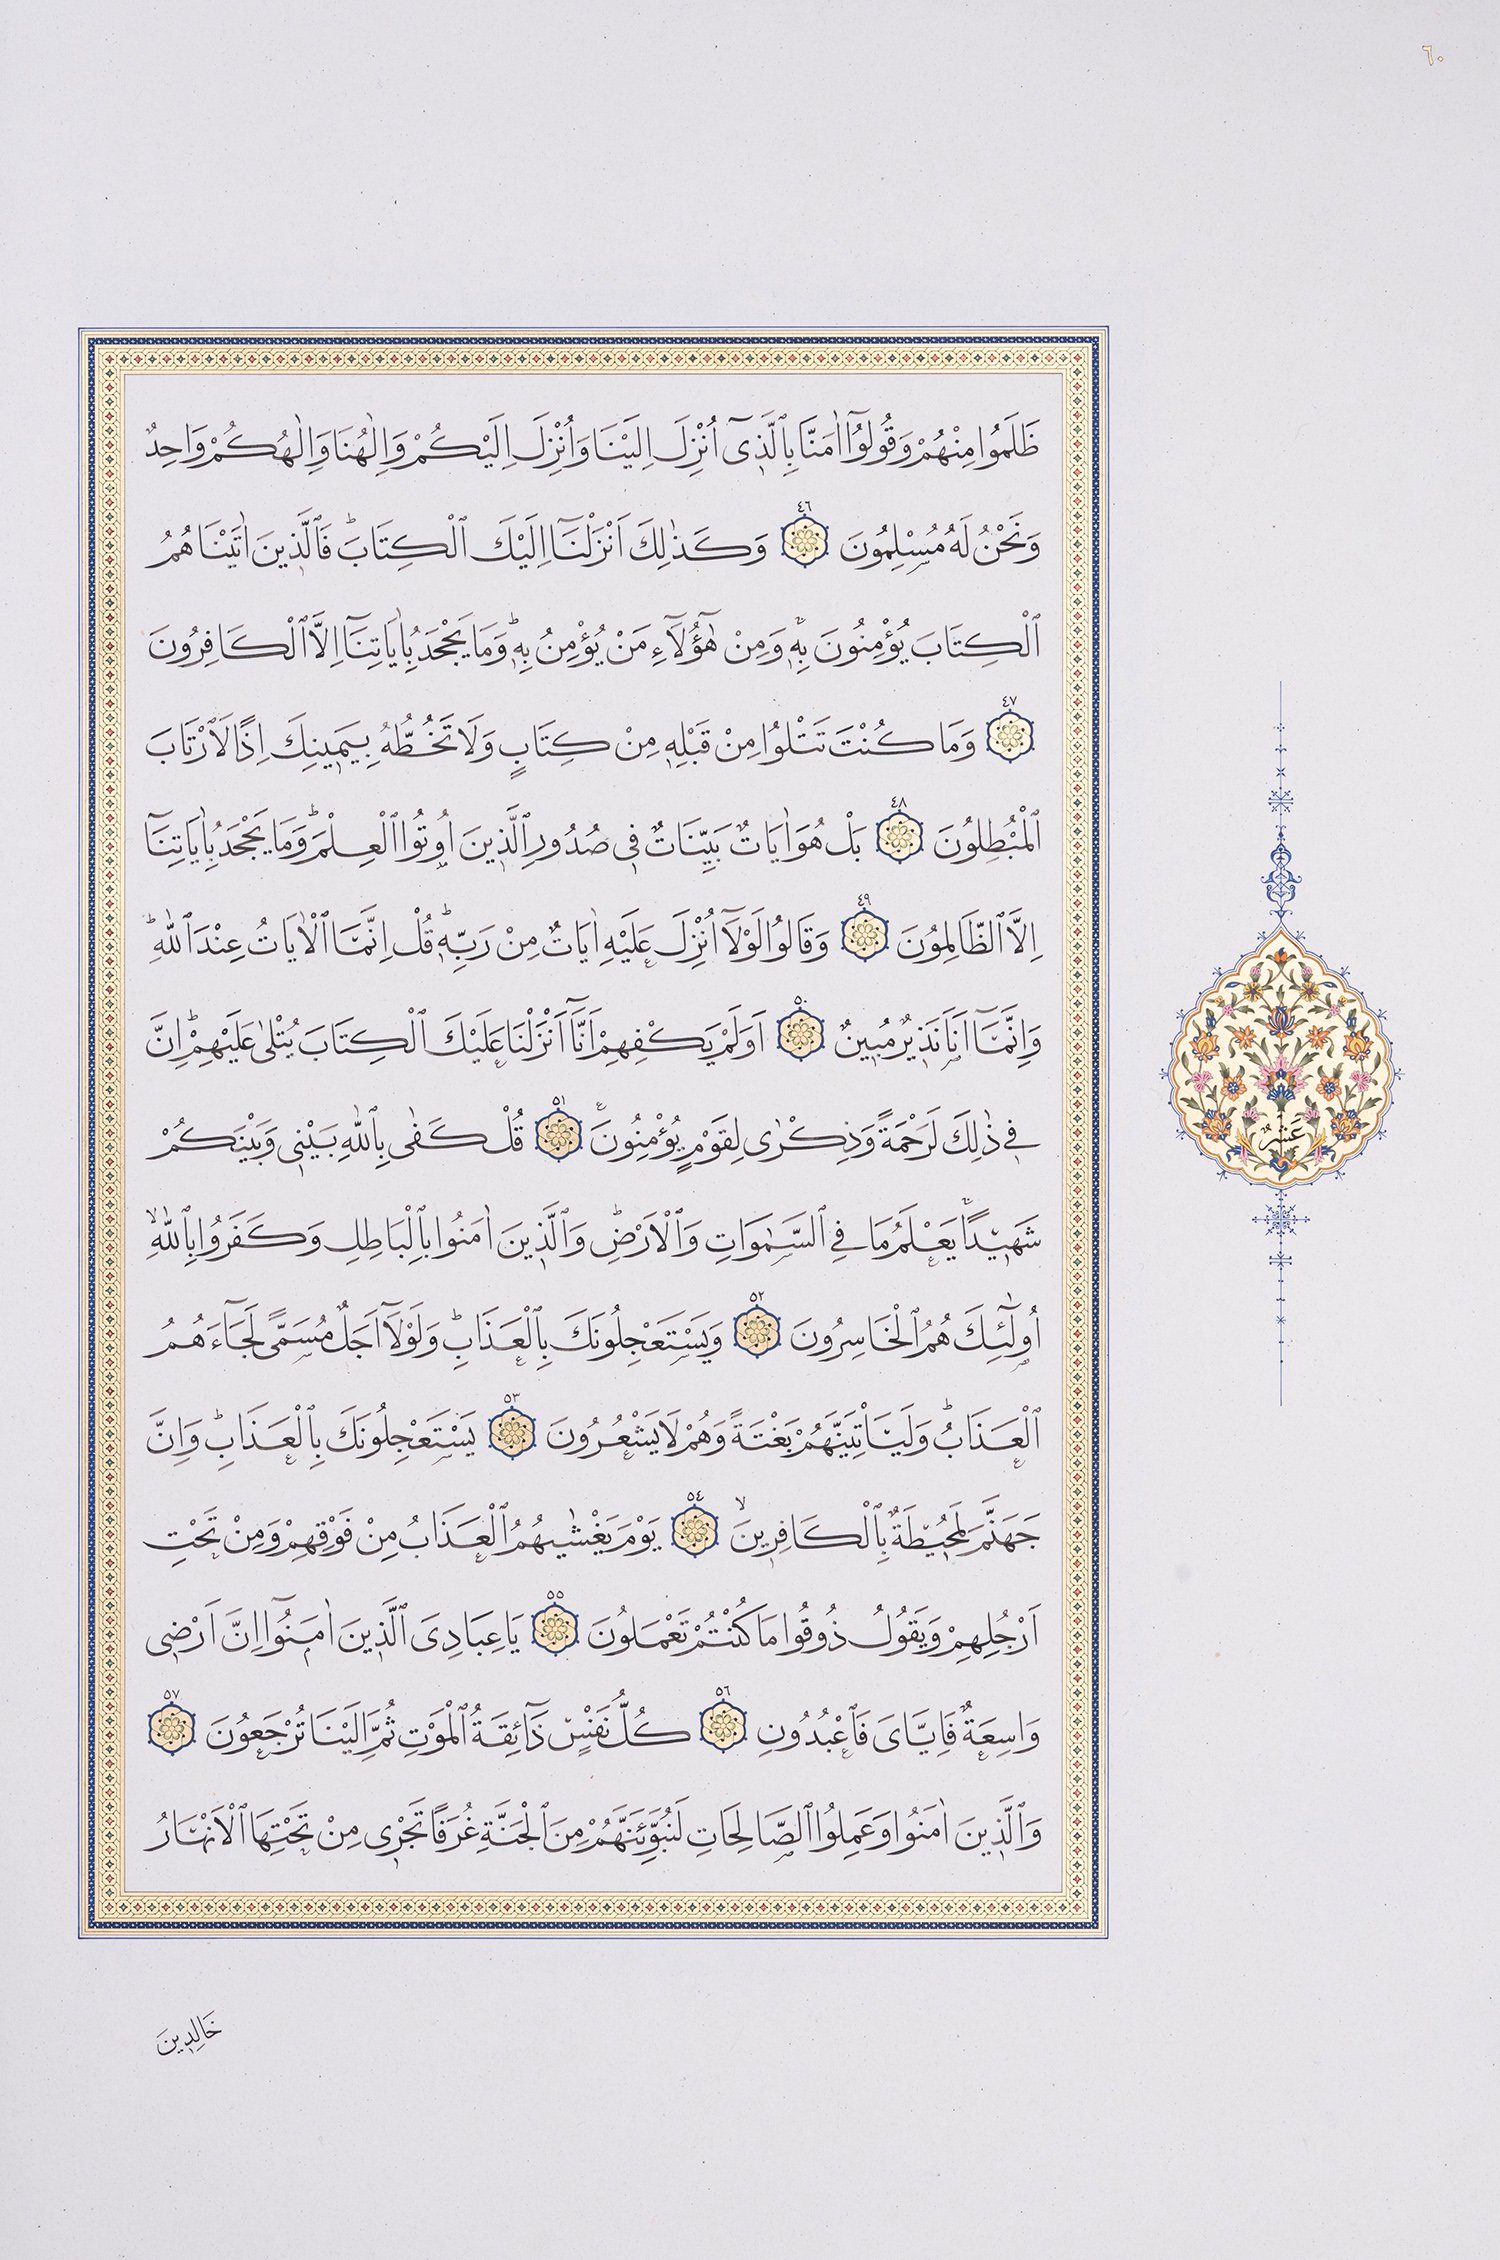 ٦٠
ظَلَمُوا مِنْهُمْ وَقُولُٓوا اٰمَنَّا بِالَّذٖٓى اُنْزِلَ اِلَيْنَا وَاُنْزِلَ اِلَيْكُمْ وَاِلٰهُنَا وَاِلٰهُكُمْ وَاحِدٌ
وَنَحْنُ لَهُ مُسْلِمُونَ ٤٦ وَكَذٰلِكَ اَنْزَلْنَٓا اِلَيْكَ الْكِتَابَؕ فَالَّذٖينَ اٰتَيْنَاهُمُ
الْكِتَابَ يُؤْمِنُونَ بِهٖۚ وَمِنْ هٰٓؤُلَٓاءِ مَنْ يُؤْمِنُ بِهٖؕ وَمَا يَجْحَدُ بِاٰيَاتِنَٓا اِلَّا الْكَافِرُونَ
٤٧ وَمَا كُنْتَ تَتْلُوا مِنْ قَبْلِهٖ مِنْ كِتَابٍ وَلَا تَخُطُّهُ بِيَمٖينِكَ اِذًا لَارْتَابَ
الْمُبْطِلُونَ ٤٨ بَلْ هُوَ اٰيَاتٌ بَيِّنَاتٌ فٖى صُدُورِ الَّذٖينَ اُوتُوا الْعِلْمَؕ وَمَا يَجْحَدُ بِاٰيَاتِنَٓا
اِلَّا الظَّالِمُونَ ٤٩ وَقَالُوا لَوْلَٓا اُنْزِلَ عَلَيْهِ اٰيَاتٌ مِنْ رَبِّهٖؕ قُلْ اِنَّمَا الْاٰيَاتُ عِنْدَ اللّٰهِؕ
وَاِنَّمَٓا اَنَا نَذٖيرٌ مُبٖينٌ ٥٠ اَوَلَمْ يَكْفِهِمْ اَنَّٓا اَنْزَلْنَا عَلَيْكَ الْكِتَابَ يُتْلٰى عَلَيْهِمْؕ اِنَّ
فٖى ذٰلِكَ لَرَحْمَةً وَذِكْرٰى لِقَوْمٍ يُؤْمِنُونَࣖ ٥١ قُلْ كَفٰى بِاللّٰهِ بَيْنٖى وَبَيْنَكُمْ
شَهٖيدًاۚ يَعْلَمُ مَا فِى السَّمٰوَاتِ وَالْاَرْضِؕ وَالَّذٖينَ اٰمَنُوا بِالْبَاطِلِ وَكَفَرُوا بِاللّٰهِۙ
اُولٰٓئِكَ هُمُ الْخَاسِرُونَ ٥٢ وَيَسْتَعْجِلُونَكَ بِالْعَذَابِؕ وَلَوْلَٓا اَجَلٌ مُسَمًّى لَجَٓاءَهُمُ
الْعَذَابُؕ وَلَيَأْتِيَنَّهُمْ بَغْتَةً وَهُمْ لَا يَشْعُرُونَ ٥٣ يَسْتَعْجِلُونَكَ بِالْعَذَابِؕ وَاِنَّ
جَهَنَّمَ لَمُحٖيطَةٌ بِالْكَافِرٖينَۙ ٥٤ يَوْمَ يَغْشٰيهُمُ الْعَذَابُ مِنْ فَوْقِهِمْ وَمِنْ تَحْتِ
اَرْجُلِهِمْ وَيَقُولُ ذُوقُوا مَا كُنْتُمْ تَعْمَلُونَ ٥٥ يَا عِبَادِىَ الَّذٖينَ اٰمَنُٓوا اِنَّ اَرْضٖى
وَاسِعَةٌ فَاِيَّاىَ فَاعْبُدُونِ ٥٦ كُلُّ نَفْسٍ ذَٓائِقَةُ الْمَوْتِ ثُمَّ اِلَيْنَا تُرْجَعُونَ ٥٧
وَالَّذٖينَ اٰمَنُوا وَعَمِلُوا الصَّالِحَاتِ لَنُبَوِّئَنَّهُمْ مِنَ الْجَنَّةِ غُرَفًا تَجْرٖى مِنْ تَحْتِهَا الْاَنْهَارُ
عَشْرٌ
خَالِدٖينَ